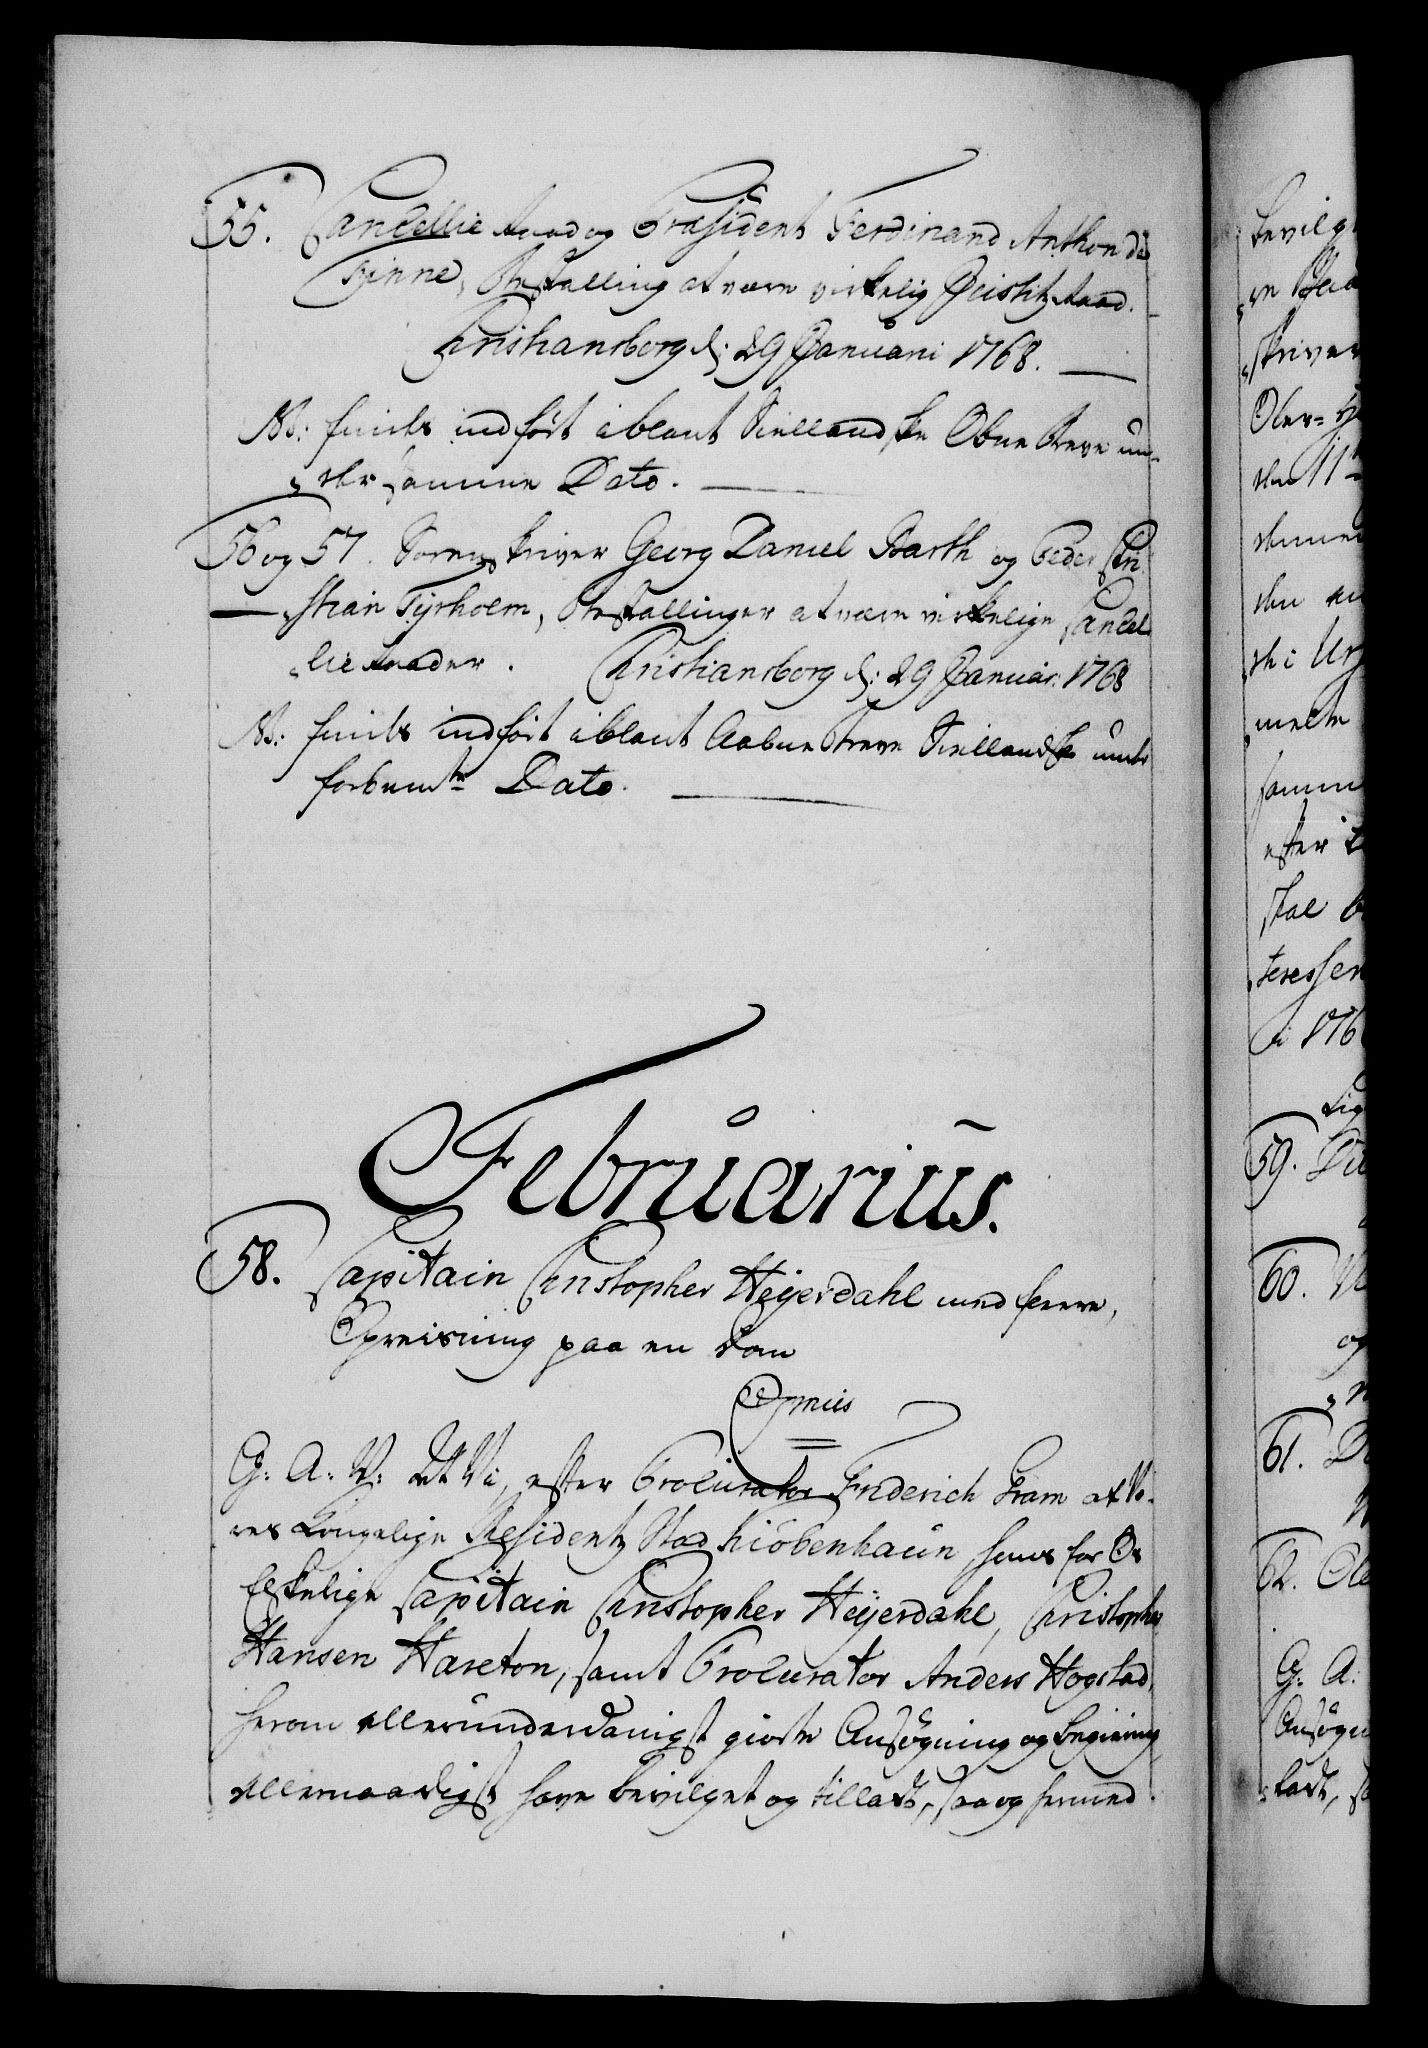 55. Cancellie Raad og Præsident Ferdinand Anthon de
Finne, Bestalling at være virkelig Justitz Raad.
Christiansborg d: 29 Januarii 1768.
NB: findes indført iblant Siellandske Obne Breve un-
der samme Dato.
56 og 57. Sorenskriver Georg Daniel Barth og Peder Chri-
stian Tyrholm, Bestallinger at være virkelige Cancel-
lie Raader. Christiansborg d: 29 Januar: 1768
NB: findes indført iblant Aabne Breve Siellandske under
forbemte Dato.
Februarius.
58. Capitain Christopher Heyerdahl med flere,
Opreisning paa en Dom
G: A: V: at Vi, efter Procurator Friderich Gram af Vo-
res Kongelige Residentz Stad Kiøbenhaun hans for Os
Elskelige Capitain Christopher Heyerdahl, Christopher
Hansen Hareton, samt Procurator Anders Hogstad,
herom allerunderdanigst giorte Ansøgning og Begiering
allernaadigst have bevilget og tilladt, saa og hermed
bevilg
skriver
Ober-
den 11te
den
melte
samme
efter
skal
teressen
59.
60.
og
61.
62. Ole
G: A:
Ansøgn
ladt,